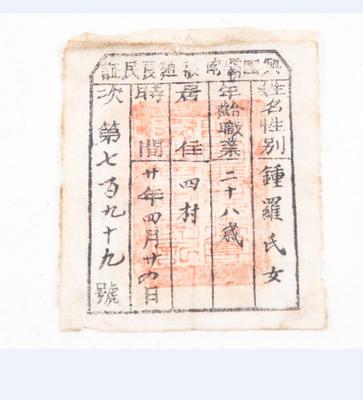 良民証
姓名性別 鍾羅氏女
年齡職業 二十八歲
居住 四村
時間 廿年四月廿四日
次第七百九十九號